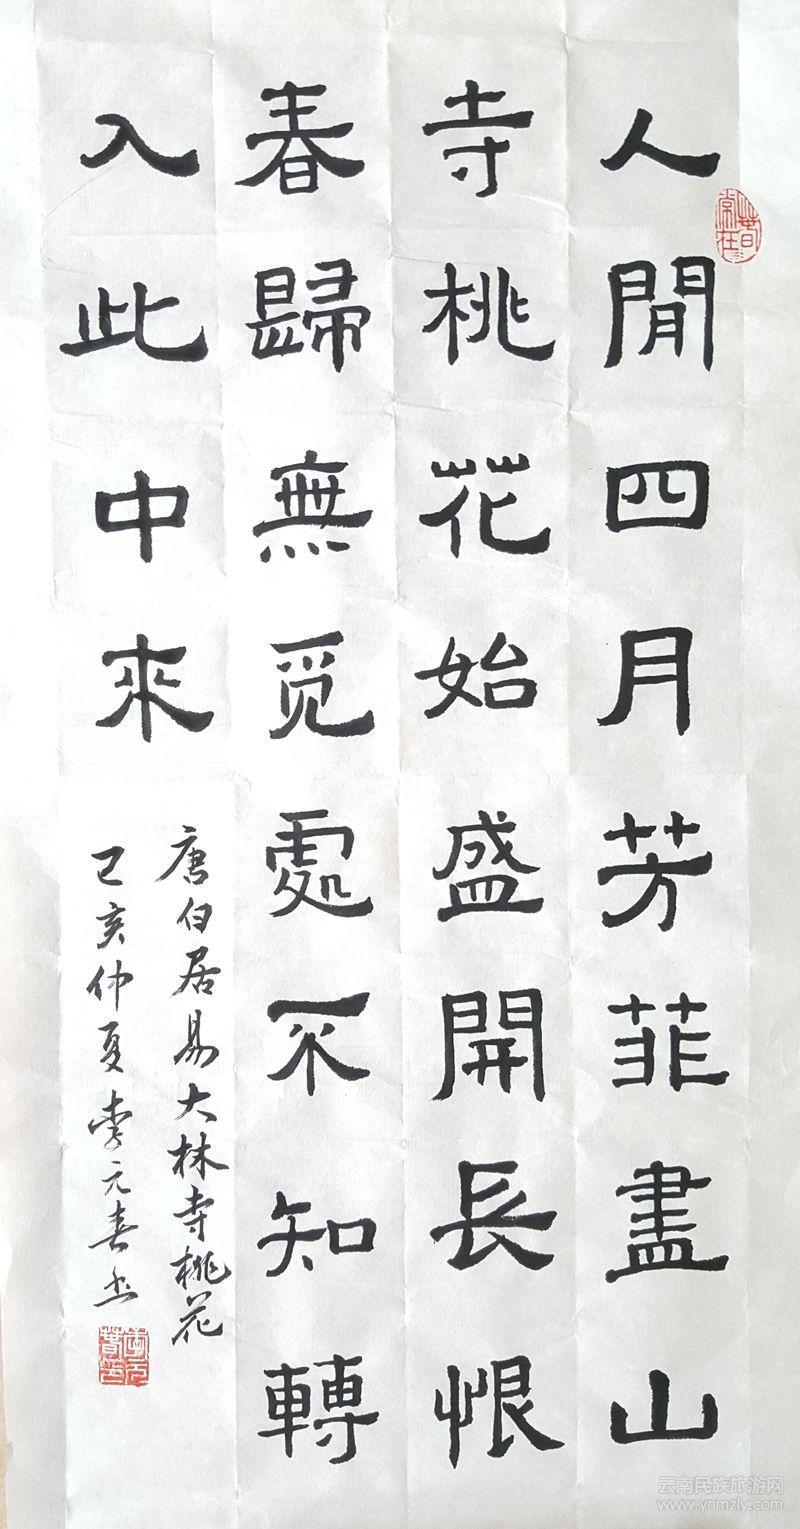 人閒四月芳菲盡山
寺桃花始盛開長恨
春歸無覓處不知轉
入此中來
唐白居易大林寺桃花
己亥仲夏李元春书
春常在
李元春印
云南民族旅游网
www.ynmzly.com